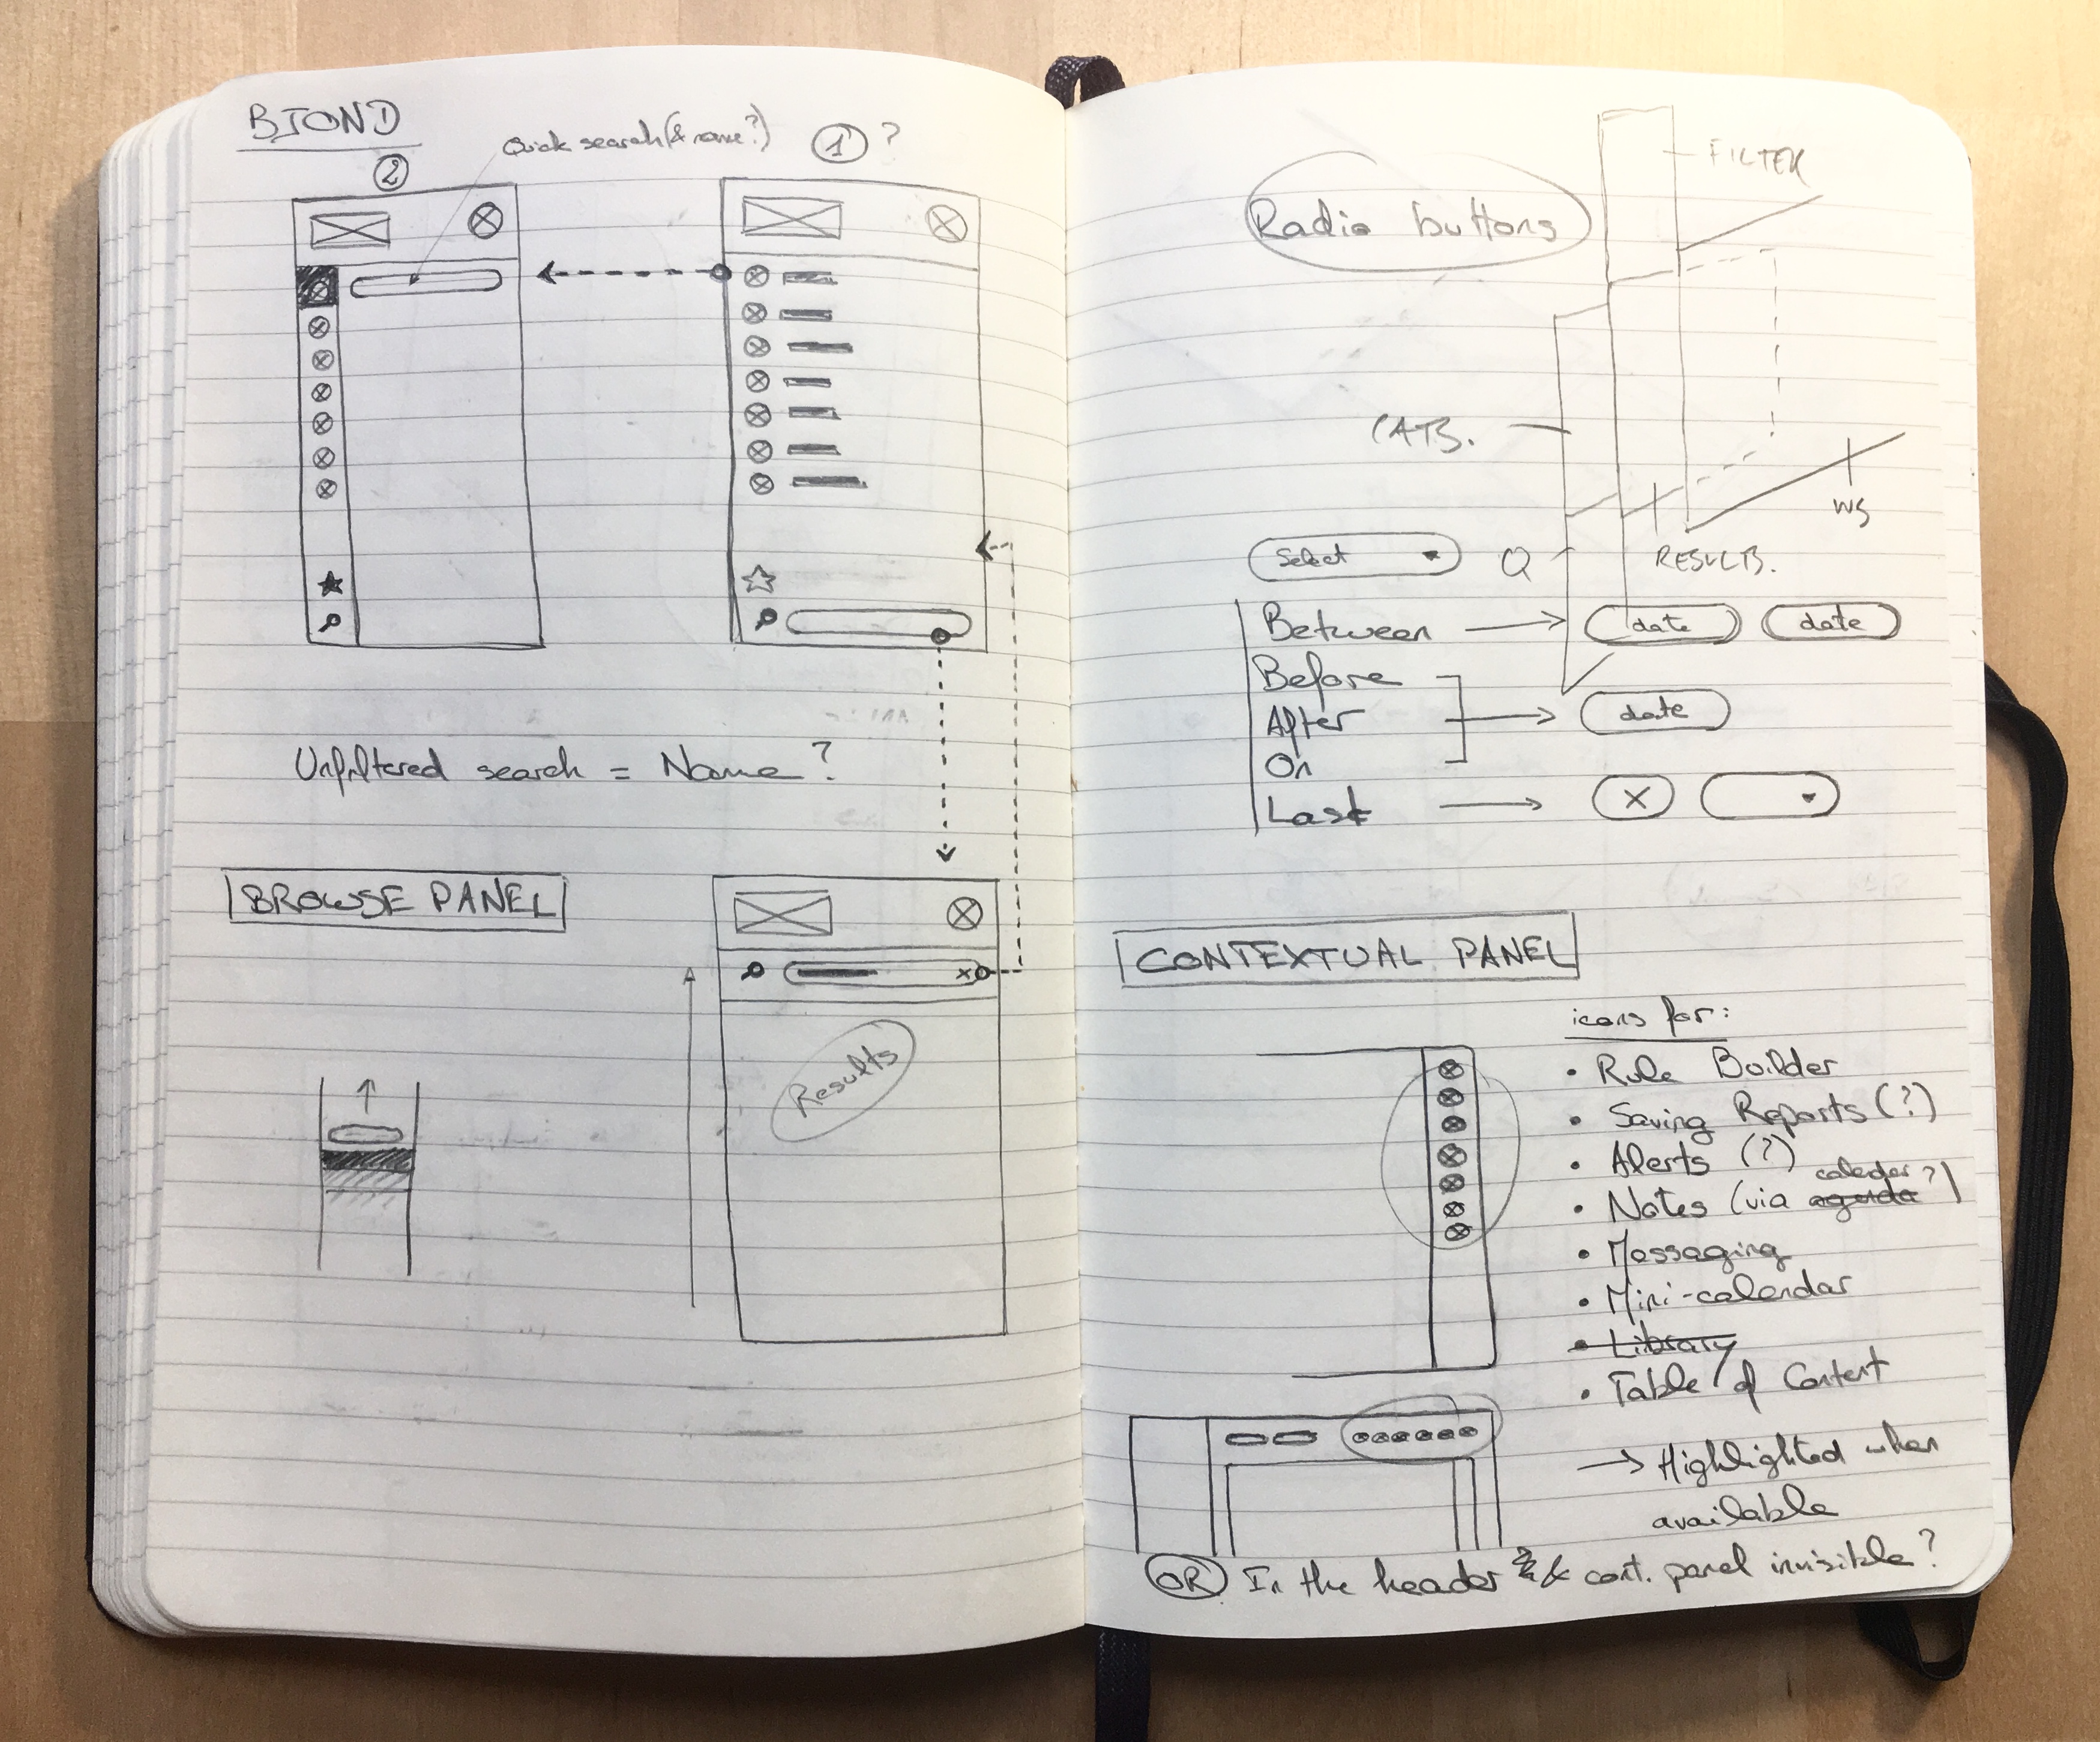 BIOND
Quick search (& name?)
1 ?
2
Unfiltered search = Name?
BROWSE PANEL
Results
Radio buttons
FILTER
CATS.
WS
Q
RESULTS.
Select
Between → date date
Before
After → date
On
Last → X
CONTEXTUAL PANEL
icons for:
• Rule Builder
• Saving Reports (?)
• Alerts (?)
calendar ?)
• Notes (via agenda
• Messaging
• Mini-calendar
• Library
• Table of Content
→ Highlighted when
available
OR In the header & cont. panel invisible?